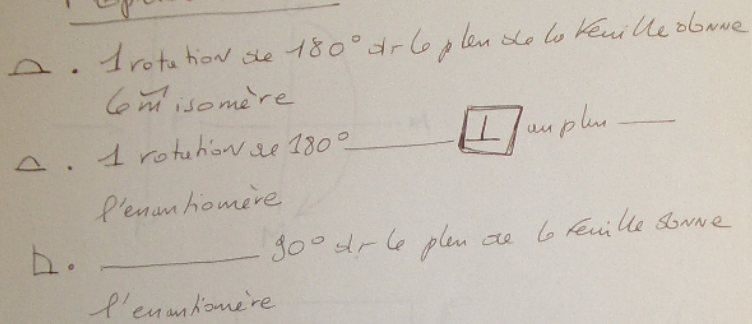 . 1 rotation de 180° dr le plan de la feuille donne
le m̄ isomère
. 1 rotation de 180° ——— ⊥ au plan ———
l'enantiomère
. ——— 90° dr le plan de la feuille donne
l'enantiomère